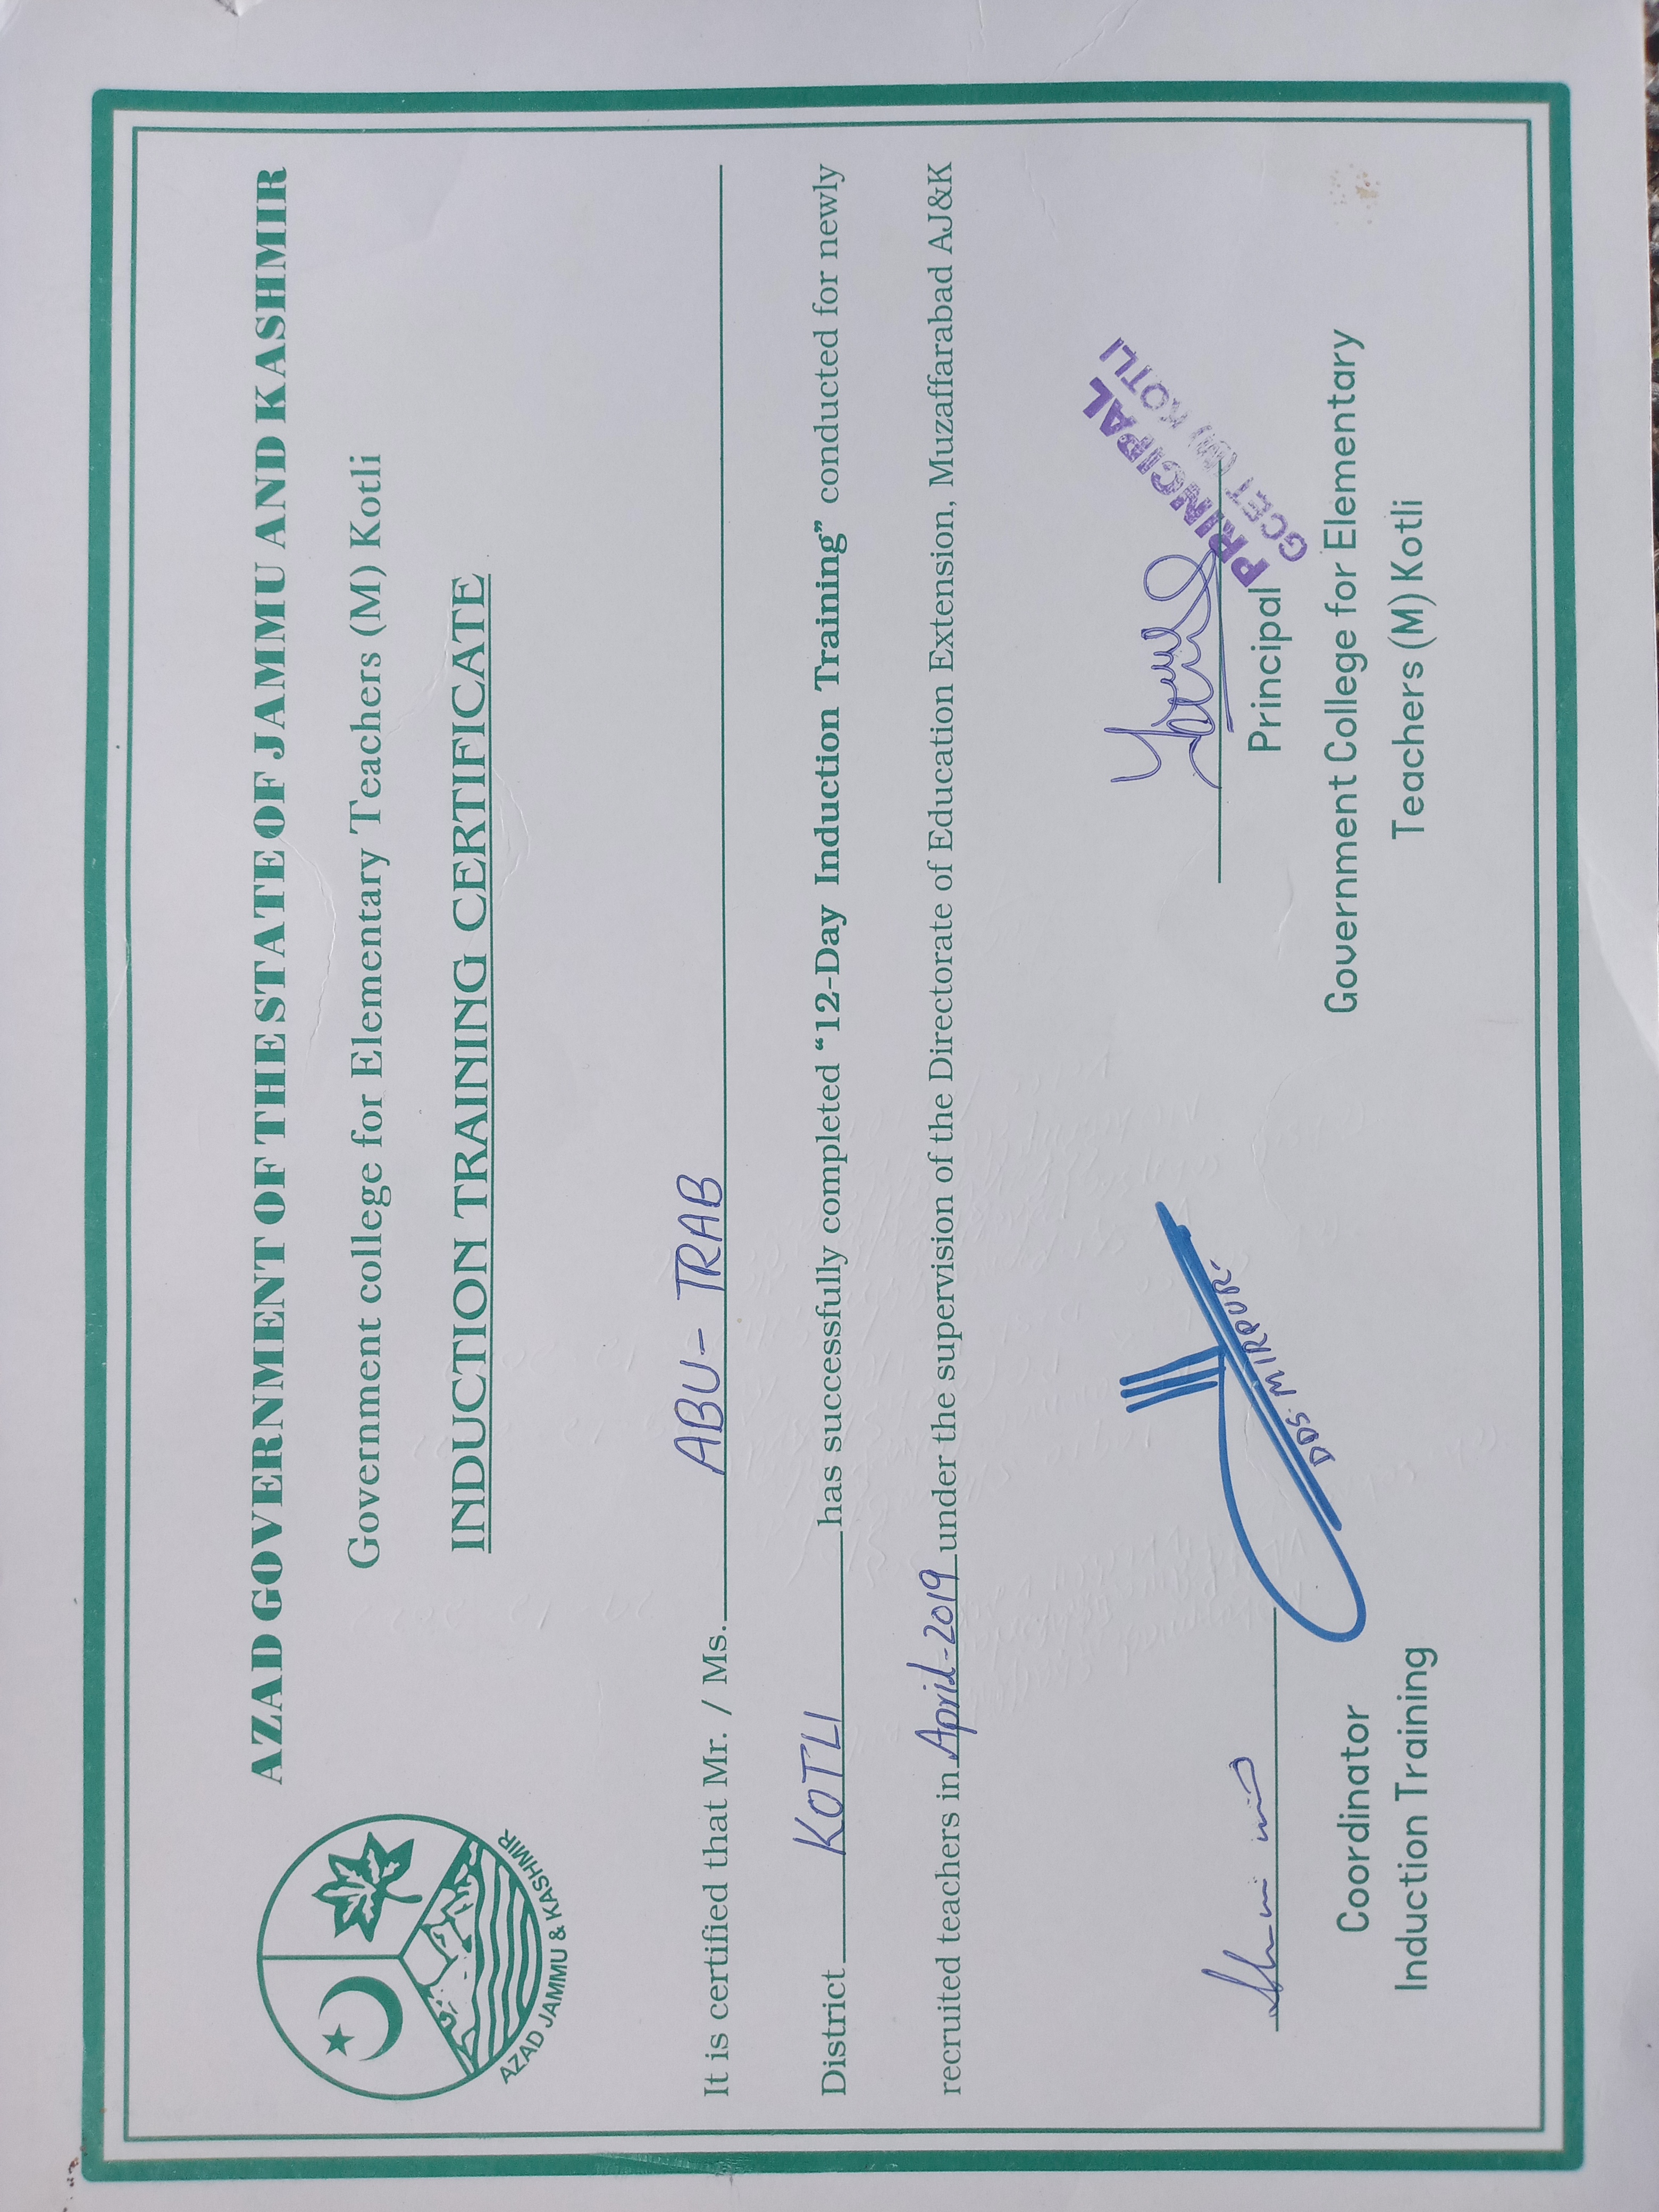 AZAD GOVERNMENT OF THE STATE OF JAMMU AND KASHMIR
Government college for Elementary Teachers (M) Kotli
INDUCTION TRAINING CERTIFICATE
AZAD JAMMU & KASHMIR
It is certified that Mr. / Ms. ABU- TRAB
District KOTLI has successfully completed “12-Day Induction Training” conducted for newly
recruited teachers in April-2019 under the supervision of the Directorate of Education Extension, Muzaffarabad AJ&K
DDS MIRPUR
PRINCIPAL
GCET (M) KOTLI
Coordinator
Induction Training
Principal
Government College for Elementary
Teachers (M) Kotli